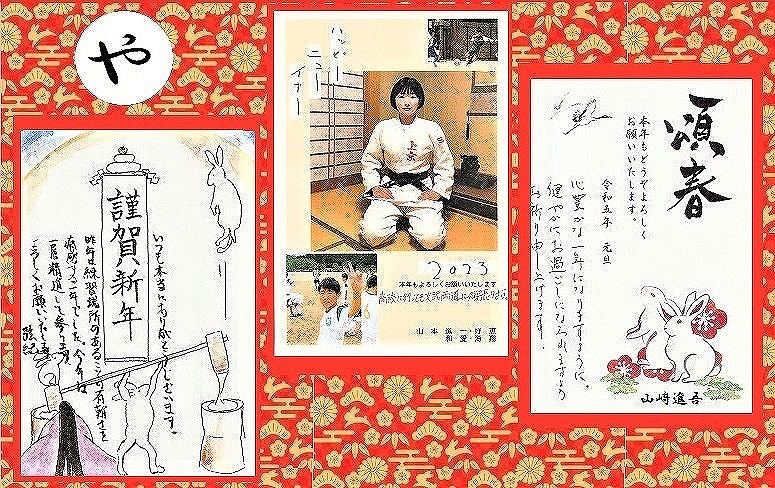 や
謹賀新年
いつも本当にありがとうございます。
昨年は練習場所のあることの有難さを
痛感する一年でした。今年は
一層精進して参ります。
よろしくお願いいたします。
ハッピー
ニュー
イヤー
2023
本年もよろしくお願いいたします
山本
和愛・海翔
頌春
本年もどうぞよろしく
お願いいたします。
令和五年 元旦
心豊かな一年になりますように。
健やかにお過ごしになられますよう
お祈り申し上げます。
山﨑進吾